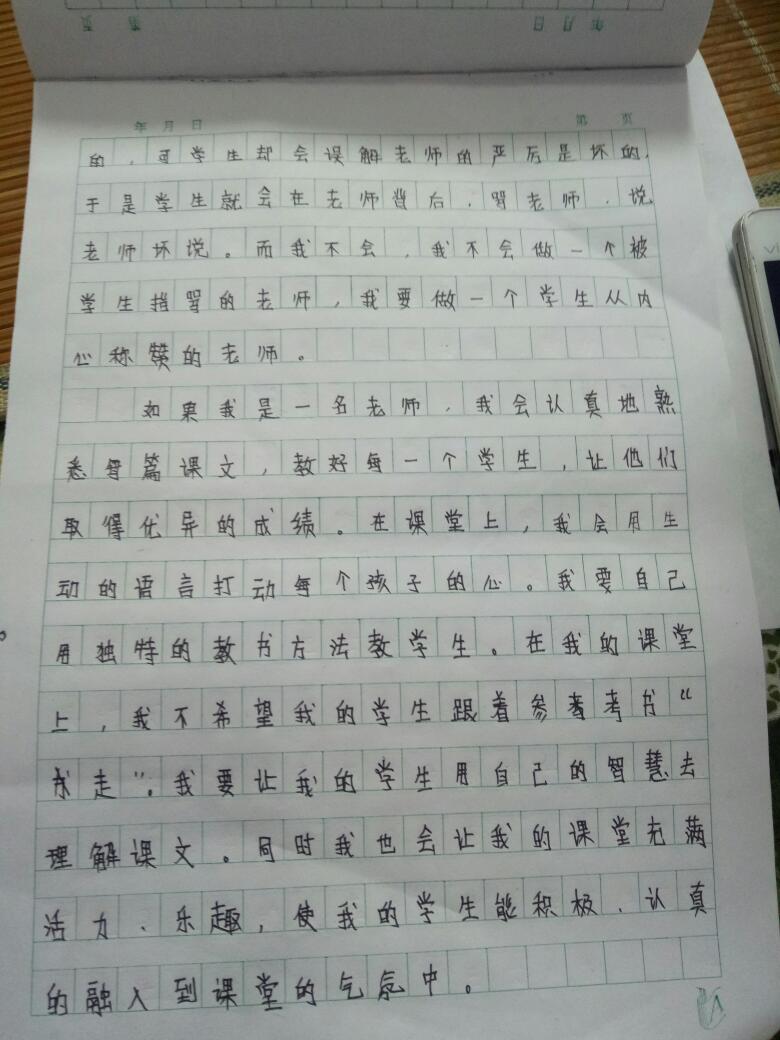 页 第 日 月 年
年 月 日 第 页
的，可学生却会误解老师的严厉是坏的，
于是学生就会在老师背后，骂老师，说
老师坏说。而我不会，我不会做一个被
学生指骂的老师，我要做一个学生从内
心称赞的老师。
如果我是一名老师，我会认真地熟
悉每篇课文，教好每一个学生，让他们
取得优异的成绩。在课堂上，我会用生
动的语言打动每个孩子的心。我要自己
用独特的教书方法教学生。在我的课堂
上，我不希望我的学生跟着参考考书“
走”。我要让我的学生用自己的智慧去
理解课文。同时我也会让我的课堂充满
活力、乐趣，使我的学生能积极、认真
的融入到课堂的气氛中。